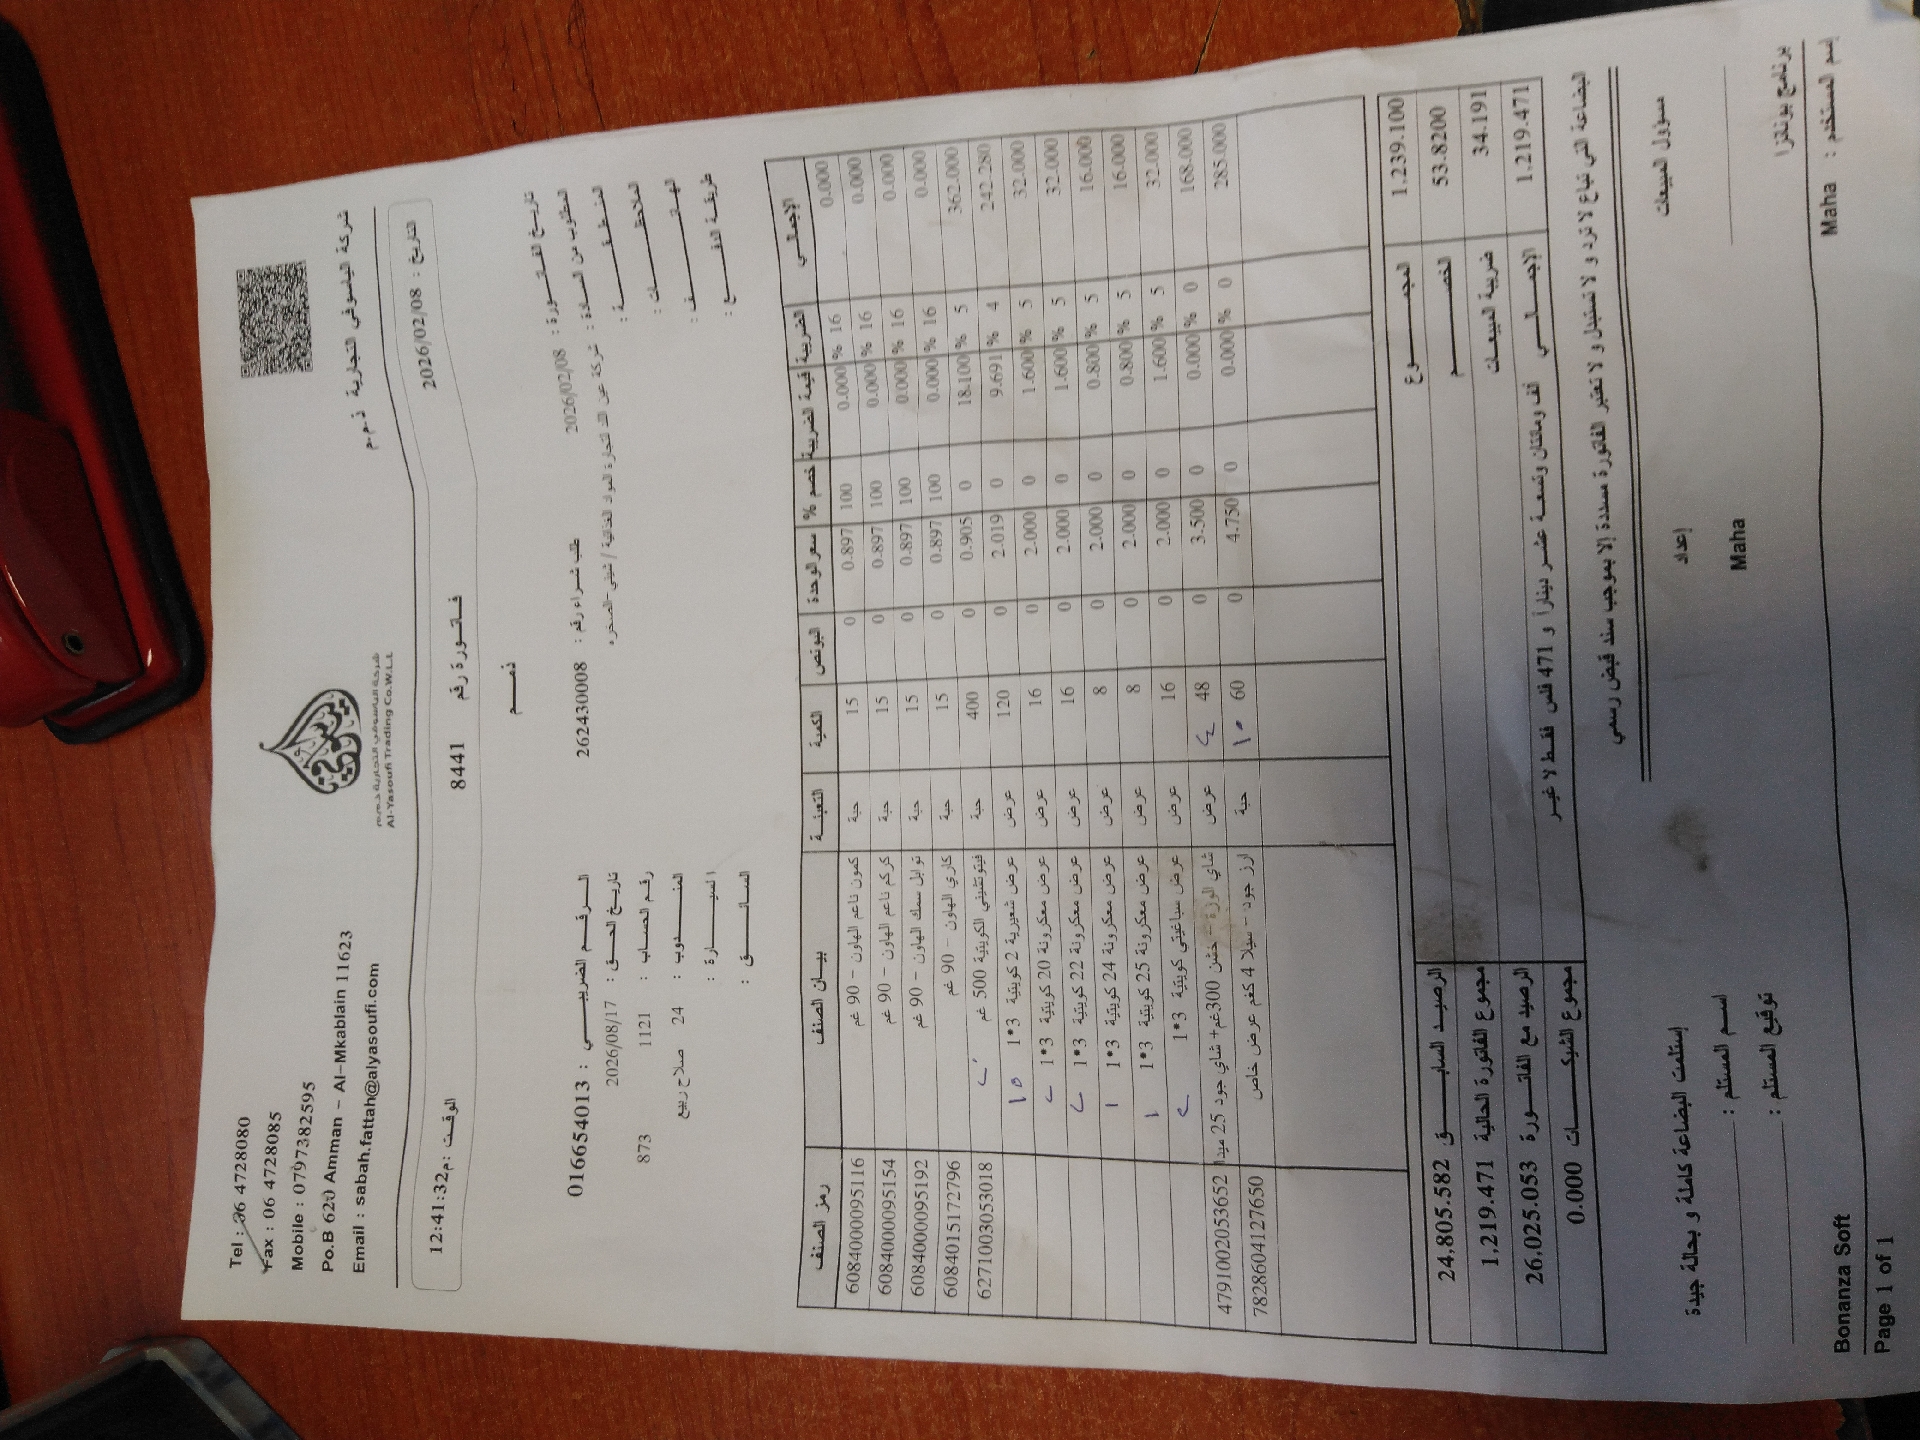 Tel : 06 4728080
Fax : 06 4728085
Mobile : 0797382595
Po.B 620 Amman - Al-Mkablain 11623
Email : sabah.fattah@alyasoufi.com
شركة الياسوفي التجارية ذ.م.م
Al-Yasoufi Trading Co.W.L.L
شركة الياسوفي التجارية ذ.م.م
التاريخ : 2026/02/08
فاتورة رقم 8441
الوقت : 12:41:32م
ذمم
تاريخ الفاتورة : 2026/02/08
طلب شراء رقم : 262430008
الرقم الضريبي : 016654013
المطلوب من السادة : شركة عين الله لتجارة المواد الغذائية /
تاريخ الحق : 2026/08/17
المنطقة :
رقم الحساب : 1121 873
الملاحظات :
المندوب : 24 صلاح ربيع
الهاتف :
السيارة :
طريقة الدفع :
السائق :
رمز الصنف بيان الصنف التعبئة الكمية البونص سعر الوحدة خصم % قيمة الضريبة الضريبة الإجمالي
6084000095116 كمون ناعم الهاون - 90 غم حبة 15 0 0.897 100 0.000 % 16 0.000
6084000095154 كركم ناعم الهاون - 90 غم حبة 15 0 0.897 100 0.000 % 16 0.000
6084000095192 توابل سمك الهاون - 90 غم حبة 15 0 0.897 100 0.000 % 16 0.000
6084015172796 كاري الهاون - 90 غم حبة 15 0 0.897 100 0.000 % 16 0.000
6271003053018 فيتوتشيني الكويتية 500 غم حبة 400 0 0.905 0 18.100 % 5 362.000
عرض شعيرية 2 كويتية 3*1 ١٥ عرض 120 0 2.019 0 9.691 % 4 242.280
عرض معكرونة 20 كويتية 3*1 ٢ عرض 16 0 2.000 0 1.600 % 5 32.000
عرض معكرونة 22 كويتية 3*1 ٢ عرض 16 0 2.000 0 1.600 % 5 32.000
عرض معكرونة 24 كويتية 3*1 ١ عرض 8 0 2.000 0 0.800 % 5 16.000
عرض معكرونة 25 كويتية 3*1 ١ عرض 8 0 2.000 0 0.800 % 5 16.000
عرض سباغيتي كويتية 3*1 ٢ عرض 16 0 2.000 0 1.600 % 5 32.000
4791002053652 شاي الوزة - خشن 300غم+ شاي جود 25 عرض 48 ٤ 0 3.500 0 0.000 % 0 168.000
7828604127650 ارز جود - سيلا 4 كغم عرض خاص حبة 60 ١٠ 0 4.750 0 0.000 % 0 285.000
المجموع 1,239.100
الخصم 53.8200
ضريبة المبيعات 34.191
الإجمالي 1,219.471
الرصيد السابق 24,805.582
مجموع الفاتورة الحالية 1,219.471
الرصيد مع الفاتورة 26,025.053
مجموع الشيكات 0.000
ألف ومائتان وتسعة عشر ديناراً و 471 فلس فقط لا غير
البضاعة التي تباع لا ترد و لا تستبدل و لا تعتبر الفاتورة مسددة إلا بموجب سند قبض رسمي
إستلمت البضاعة كاملة و بحالة جيدة
إسم المستلم :
توقيع المستلم :
إعداد
Maha
مسؤول المبيعات
برنامج بونانزا
إسم المستخدم : Maha
Bonanza Soft
Page 1 of 1